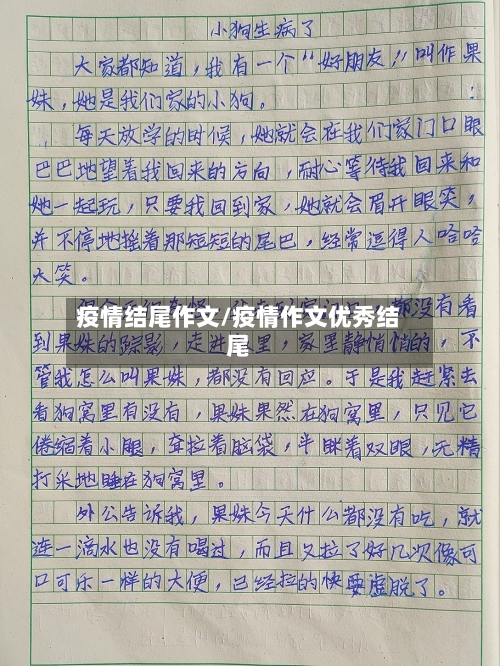 小狗生病了
大家都知道，我有一个“好朋友”叫作果
妹，她是我们家的小狗。
每天放学的时候，她就会在我们家门口眼
巴巴地望着我回来的方向，耐心等待我回来和
她一起玩，只要我回到家，她就会眉开眼笑，
并不停地摇着那短短的尾巴，经常逗得人哈哈
大笑。
都没有看
疫情结尾作文/疫情作文优秀结
尾
到果妹的踪影，走进 里，家里静悄悄的，不
管我怎么叫果妹，都没有回应。于是我赶紧去
看狗窝里有没有，果妹果然在狗窝里，只见它
倦缩着小腿，耷拉着脑袋，半眯着双眼，无精
打采地睡在狗窝里。
外公告诉我，果妹今天什么都没有吃，就
连一滴水也没有喝过，而且又拉了好几次像可
口可乐一样的大便，已经拉的快要虚脱了。